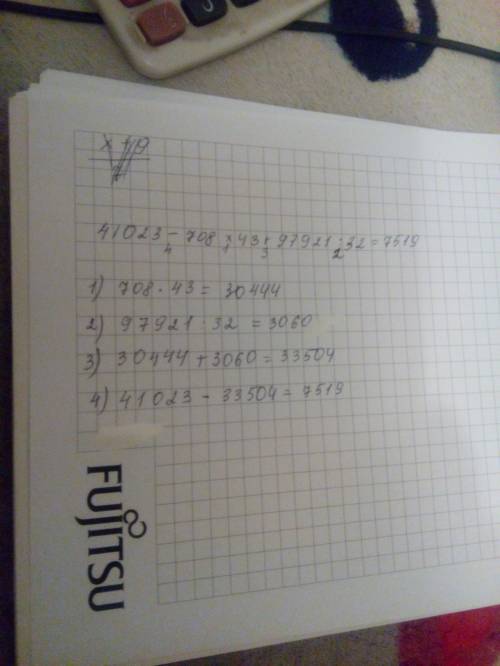 41023 - 708 · 43 + 97921 : 32 = 7519
4 1 3 2
1) 708 · 43 = 30444
2) 97921 : 32 = 3060
3) 30444 + 3060 = 33504
4) 41023 - 33504 = 7519
FUJITSU